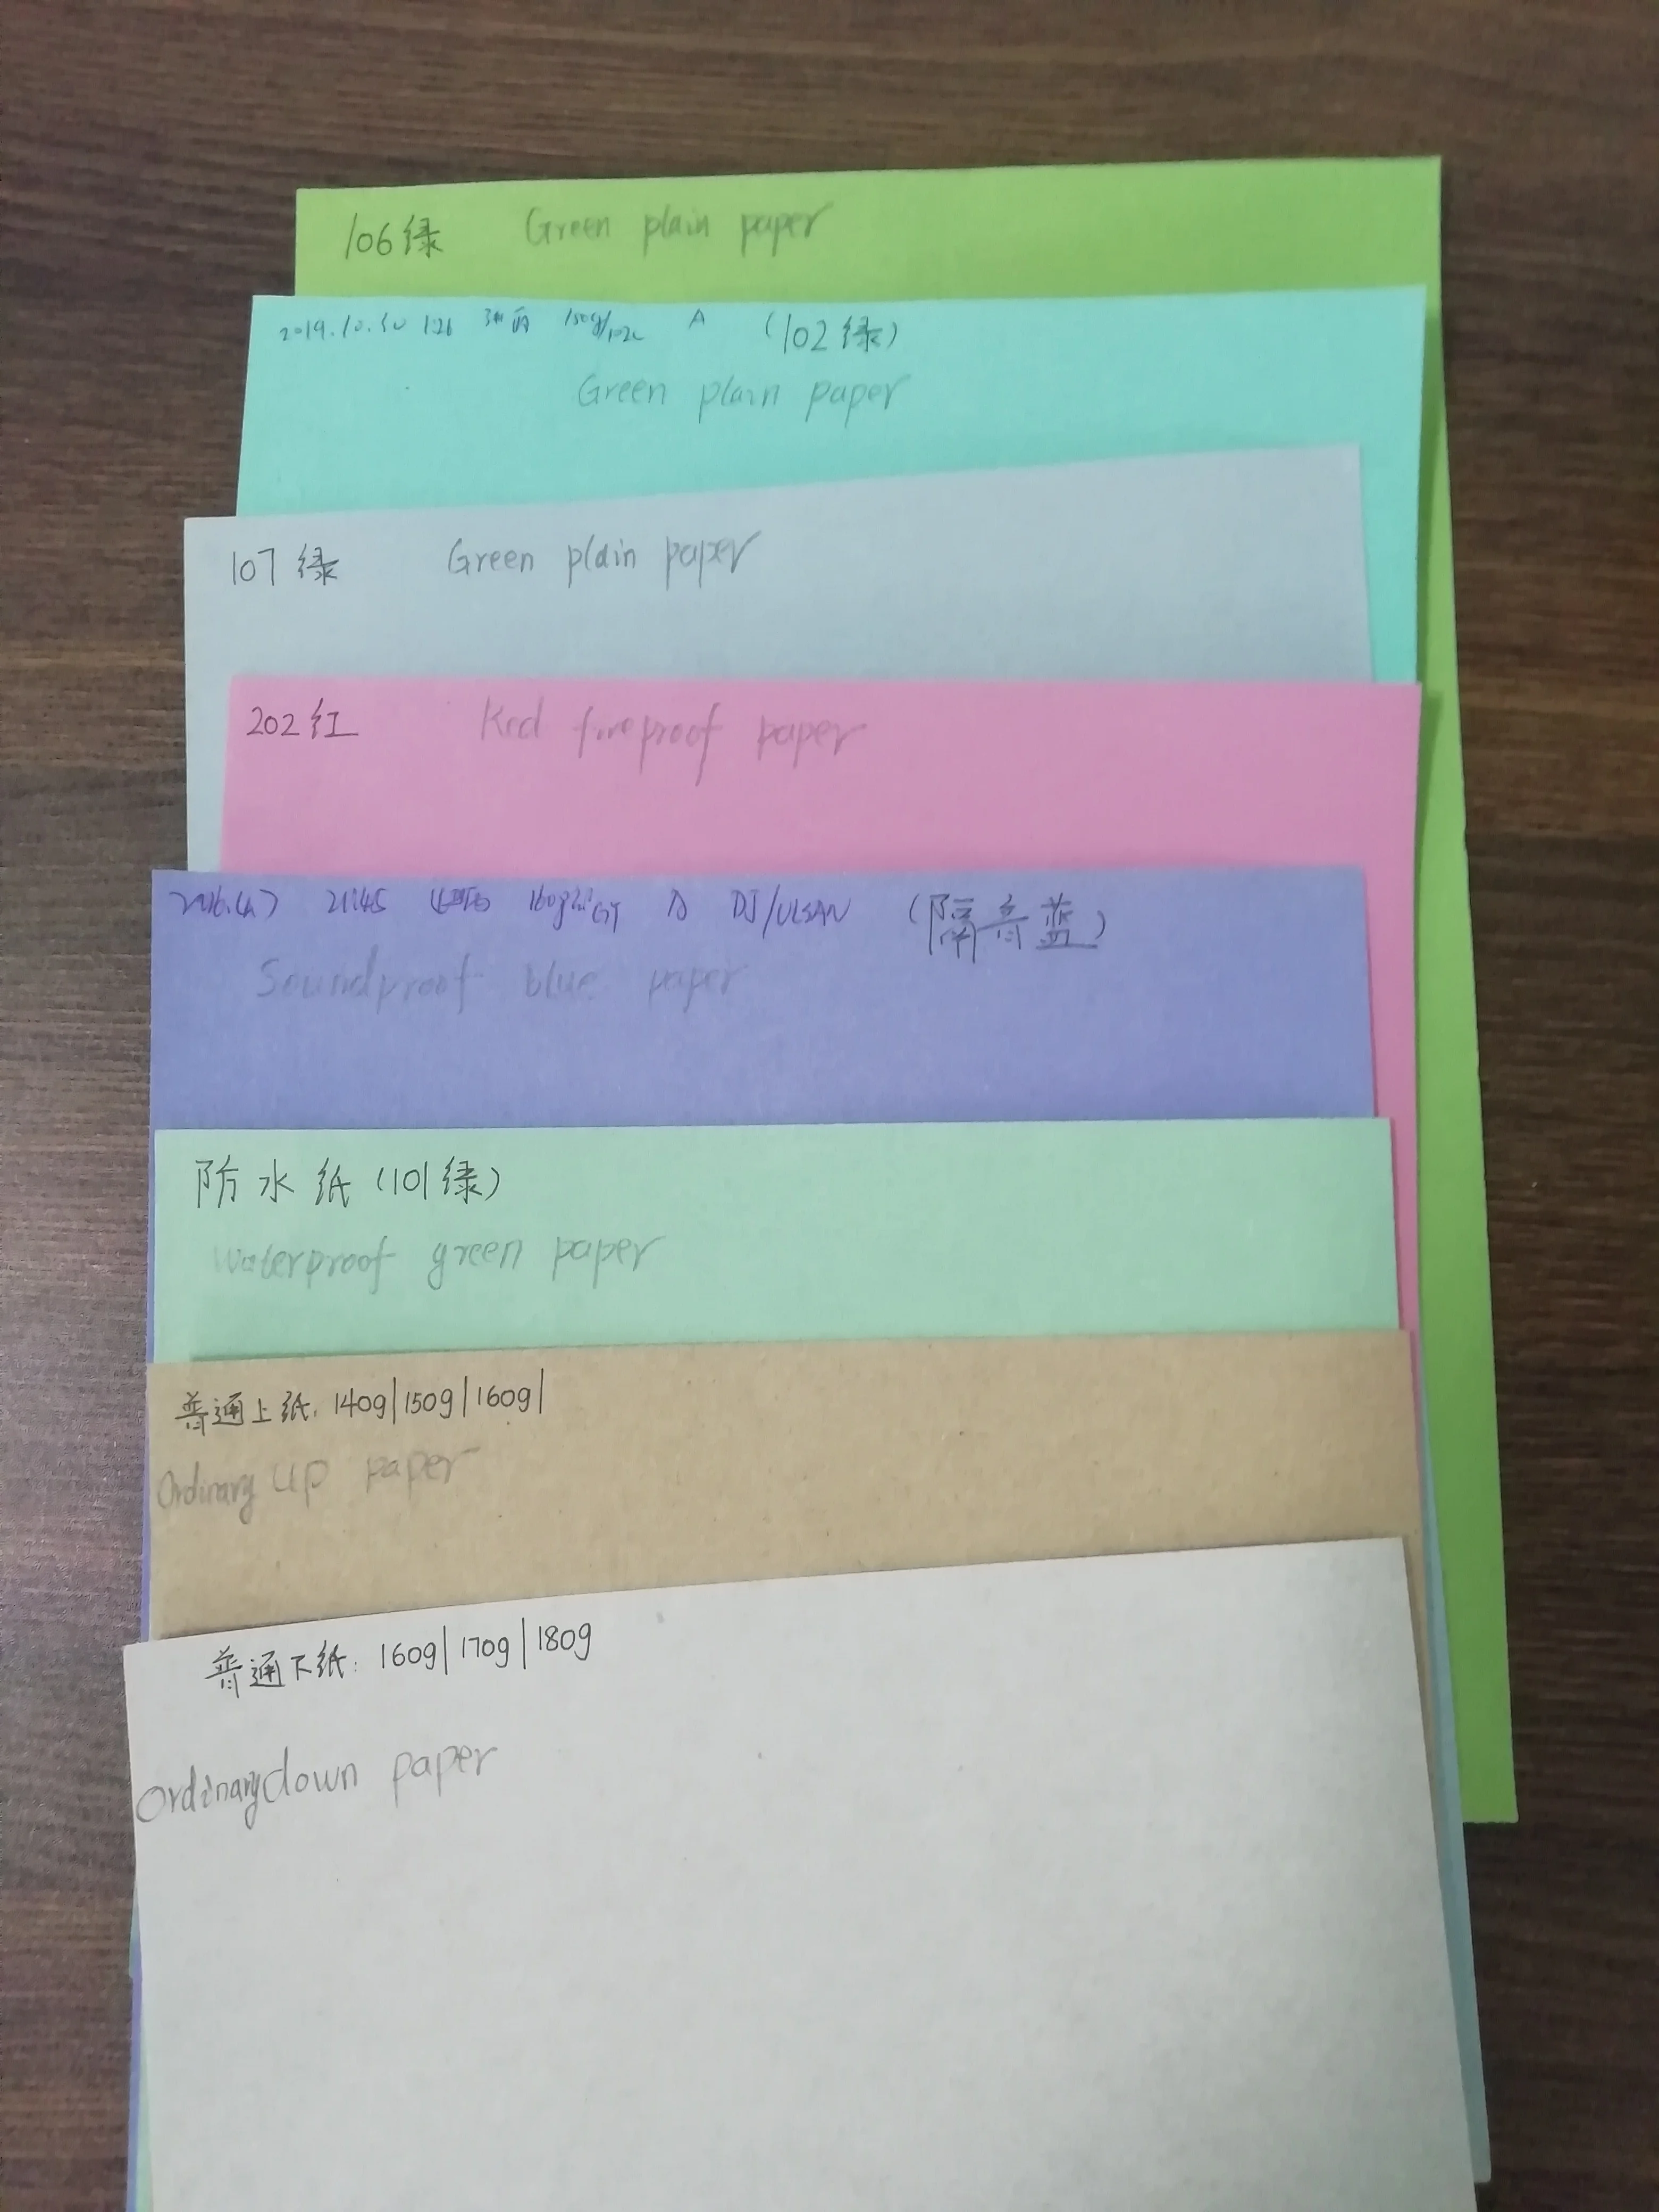 106绿 Green plain paper
2019.10.30 1:26 150g/102L A (102绿)
Green plain paper
107绿 Green plain paper
202红 Red fireproof paper
21:45 160g D DJ/ULSAN (隔音蓝)
Soundproof blue paper
防水纸(101绿)
Waterproof green paper
普通上纸: 140g|150g|160g|
Ordinary up paper
普通下纸: 160g|170g|180g
Ordinary down paper